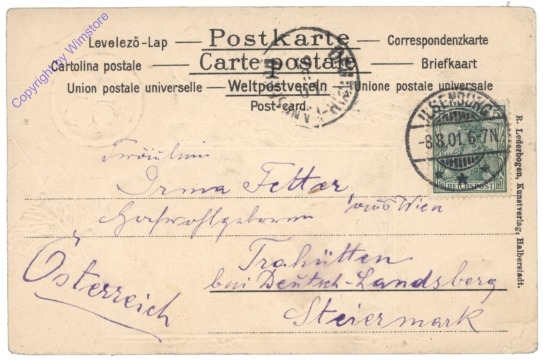 Copyright by Wimstore
Postkarte
Levelező-Lap
Correspondenzkarte
Carte postale
Cartolina postale
Briefkaart
Weltpostverein
Union postale universelle
Unione postale universale
Post-card.
ILSENBURG
-8.8.01.6-7N.
REICHSPOST
R. Lederbogen, Kunstverlag, Halberstadt.
Fräulein
Irma Fetter
Hochwohlgeboren aus Wien
Trahütten
bei Deutsch-Landsberg
Steiermark
Österreich